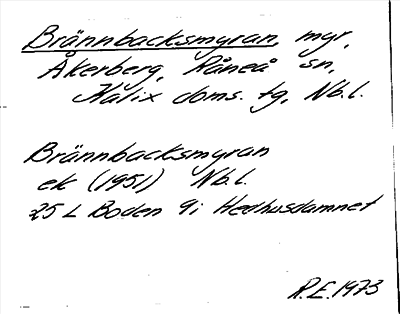 Brännbacksmyran, myr,
Åkerberg, Råneå sn,
Kalix doms. tg, Nb.l.
Brännbacksmyran
ek (1951) Nb.l.
25 L Boden 9i Hedhusdamnet
R.E. 1973